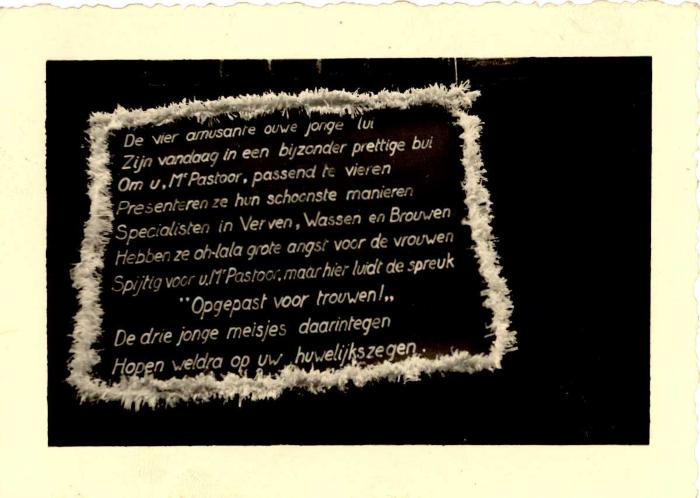 De vier amusante ouwe jonge lui
Zijn vandaag in een bijzonder prettige bui
Om u, Mr Pastoor, passend te vieren
Presenteren ze hun schoonste manieren
Specialisten in Verven, Wassen en Brouwen
Hebben ze oh-lala grote angst voor de vrouwen
Spijtig voor u, Mr Pastoor, maar hier luidt de spreuk
"Opgepast voor trouwen!„
De drie jonge meisjes daarintegen
Hopen weldra op uw huwelijkszegen.